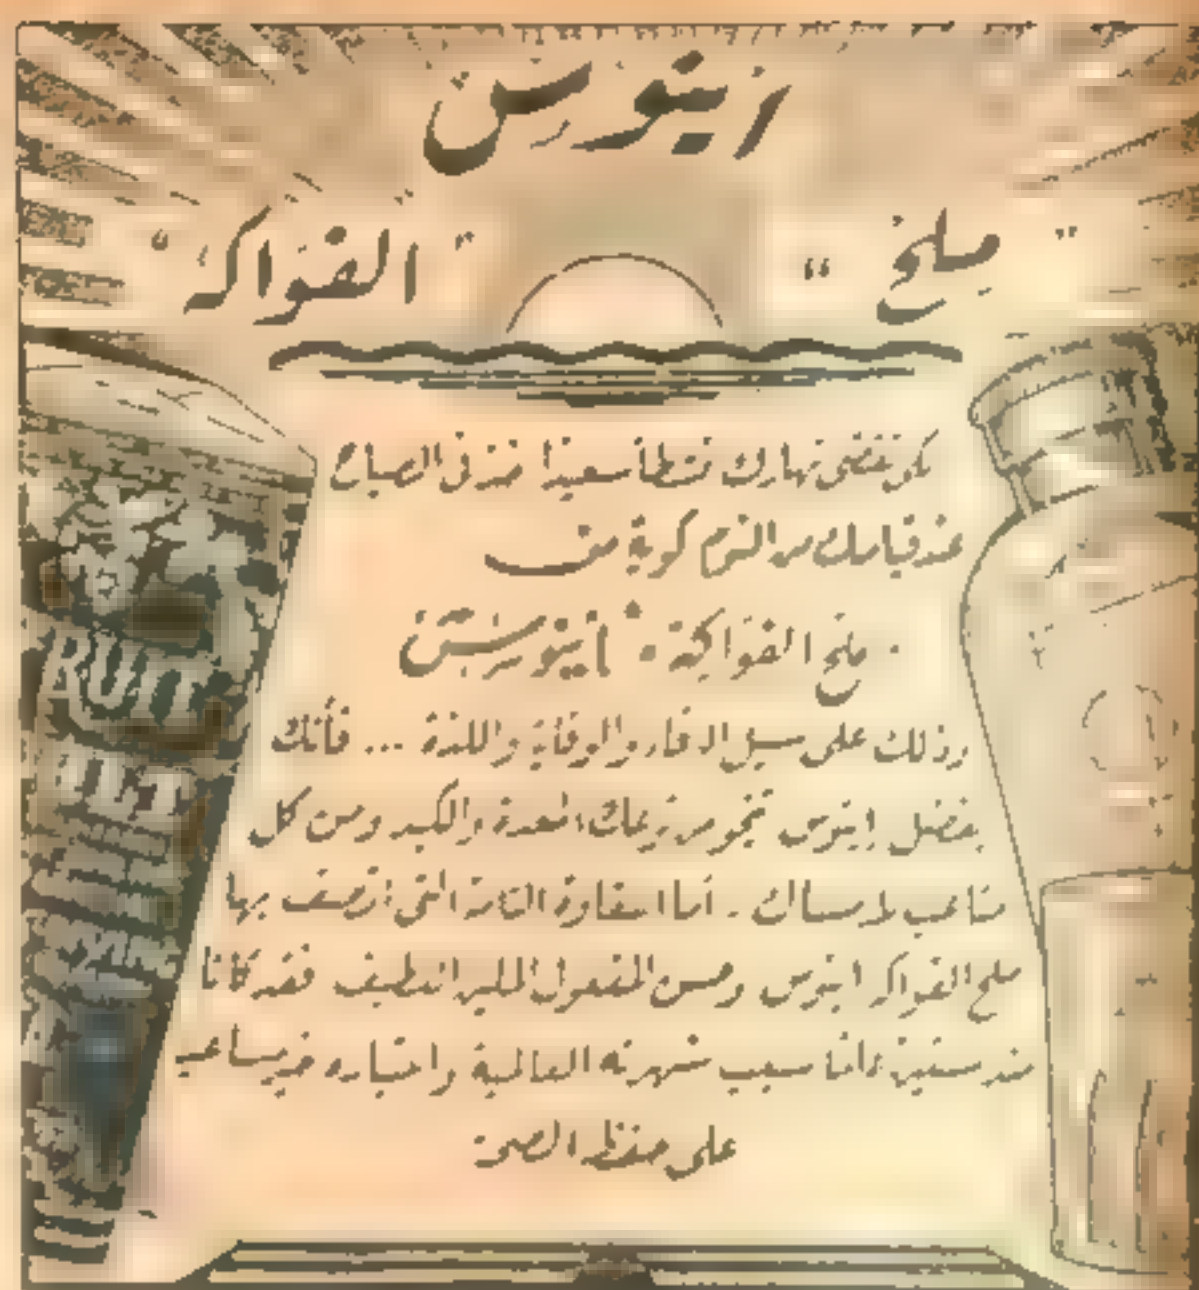 اينوس
"ملح" "الفواكه"
لكى تقضى نهارك نشطا سعيدا خذ فى الصباح
عند قيامك من النوم كوبة من
ملح الفواكة اينوس
وذلك على سبيل والوقاية واللذة ... فأنك
بفضل اينوس تنجو من المعدة والكبد ومن كل
متاعب الامساك . أما التامة التى اتصف بها
ملح الفواكه اينوس وحسن المفعول الملين اللطيف فقد كانا
منذ ستين عاما سبب شهرته العالمية واختياره خير مساعد
على حفظ الصحة